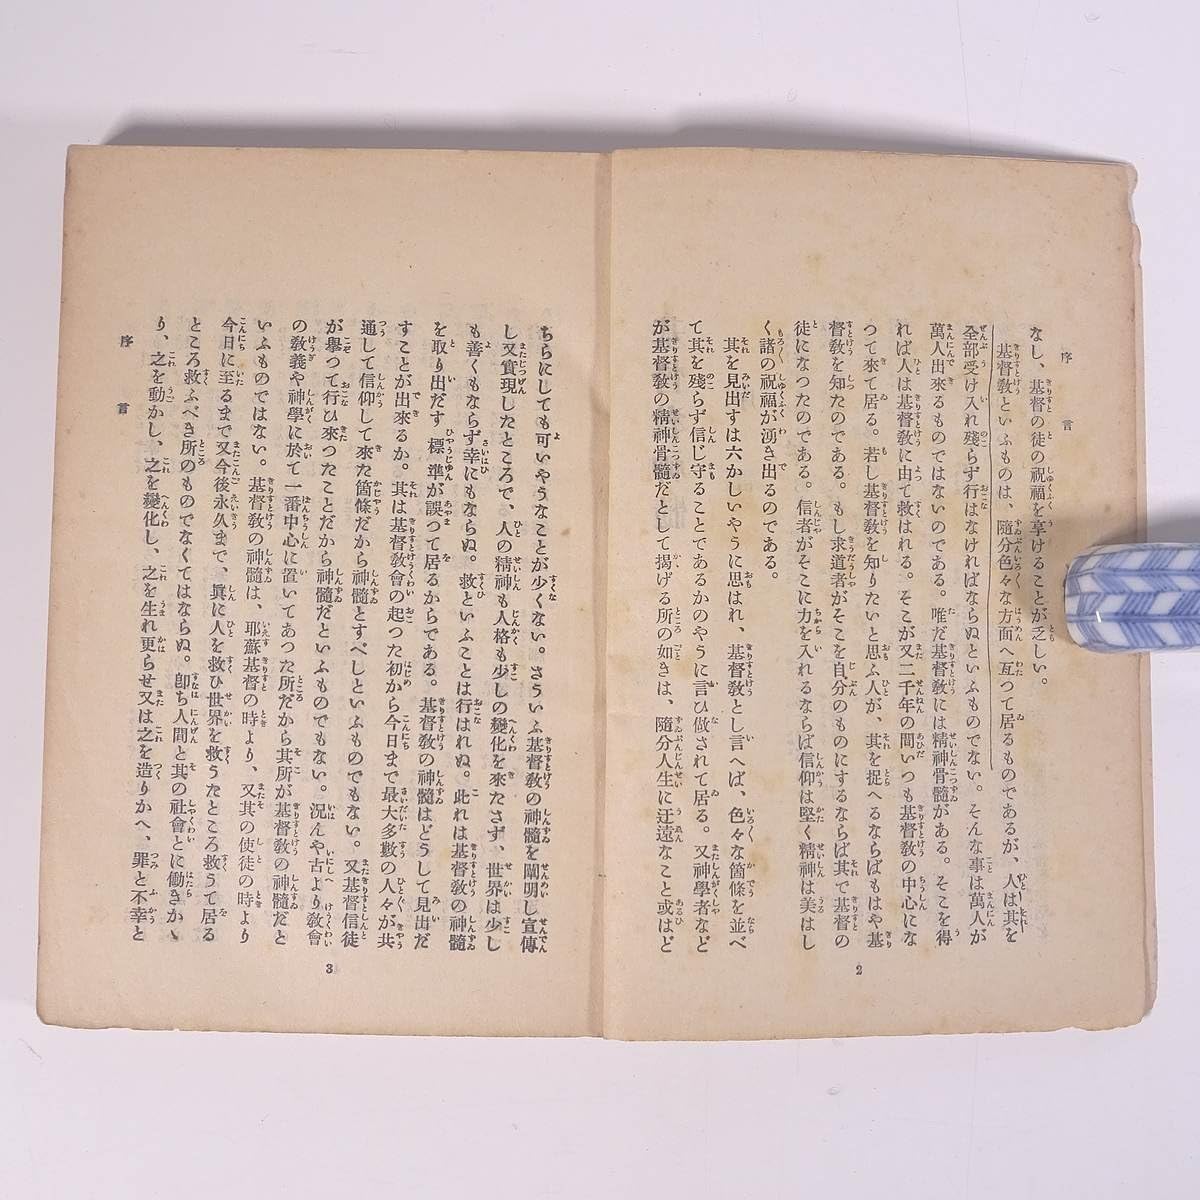 序言
なし、基督の徒の祝福を享けることが乏しい。
基督敎といふものは、隨分色々な方面へ亙つて居るものであるが、人は其を
全部受け入れ殘らず行はなければならぬといふものでない。そんな事は萬人が
萬人出來るものではないのである。唯だ基督敎には精神骨髓がある。そこを得
れば人は基督敎に由て救はれる。そこが又二千年の間いつも基督敎の中心にな
つて來て居る。若し基督敎を知りたいと思ふ人が、其を捉へるならばもはや基
督敎を知つたのである。もし求道者がそこを自分のものにするならば其で基督の
徒になつたのである。信者がそこに力を入れるならば信仰は堅く精神は美はし
く諸の祝福が湧き出るのである。
其を見出すは六かしいやうに思はれ、基督敎とし言へば、色々な箇條を並べ
て其を殘らず信じ守ることであるかのやうに言ひ做されて居る。又神學者など
が基督敎の精神骨髓だとして揭げる所の如きは、隨分人生に迂遠なこと或はど
2
ちらにしても可いやうなことが少くない。さういふ基督敎の神髓を闡明し宣傳
し又實現したところで、人の精神も人格も少しの變化を來たさず、世界は少し
も善くもならず幸にもならぬ。救といふことは行はれぬ。此れは基督敎の神髓
を取り出だす標準が誤つて居るからである。基督敎の神髓はどうして見出だ
すことが出來るか。其は基督敎會の起つた初から今日まで最大多數の人々が共
通して信仰して來た箇條だから神髓とすべしといふものでもない。又基督信徒
が擧つて行ひ來つたことだから神髓だといふものでもない。況んや古より敎會
の敎義や神學に於て一番中心に置いてあつた所だから其所が基督敎の神髓だと
いふものではない。基督敎の神髓は、耶蘇基督の時より、又其の使徒の時より
今日に至るまで又今後永久まで、眞に人を救ひ世界を救うたところ救うて居る
ところ救ふべき所のものでなくてはならぬ。卽ち人間と其の社會とに働きかゝ
り、之を動かし、之を變化し、之を生れ更らせ又は之を造りかへ、罪と不幸と
序言
3